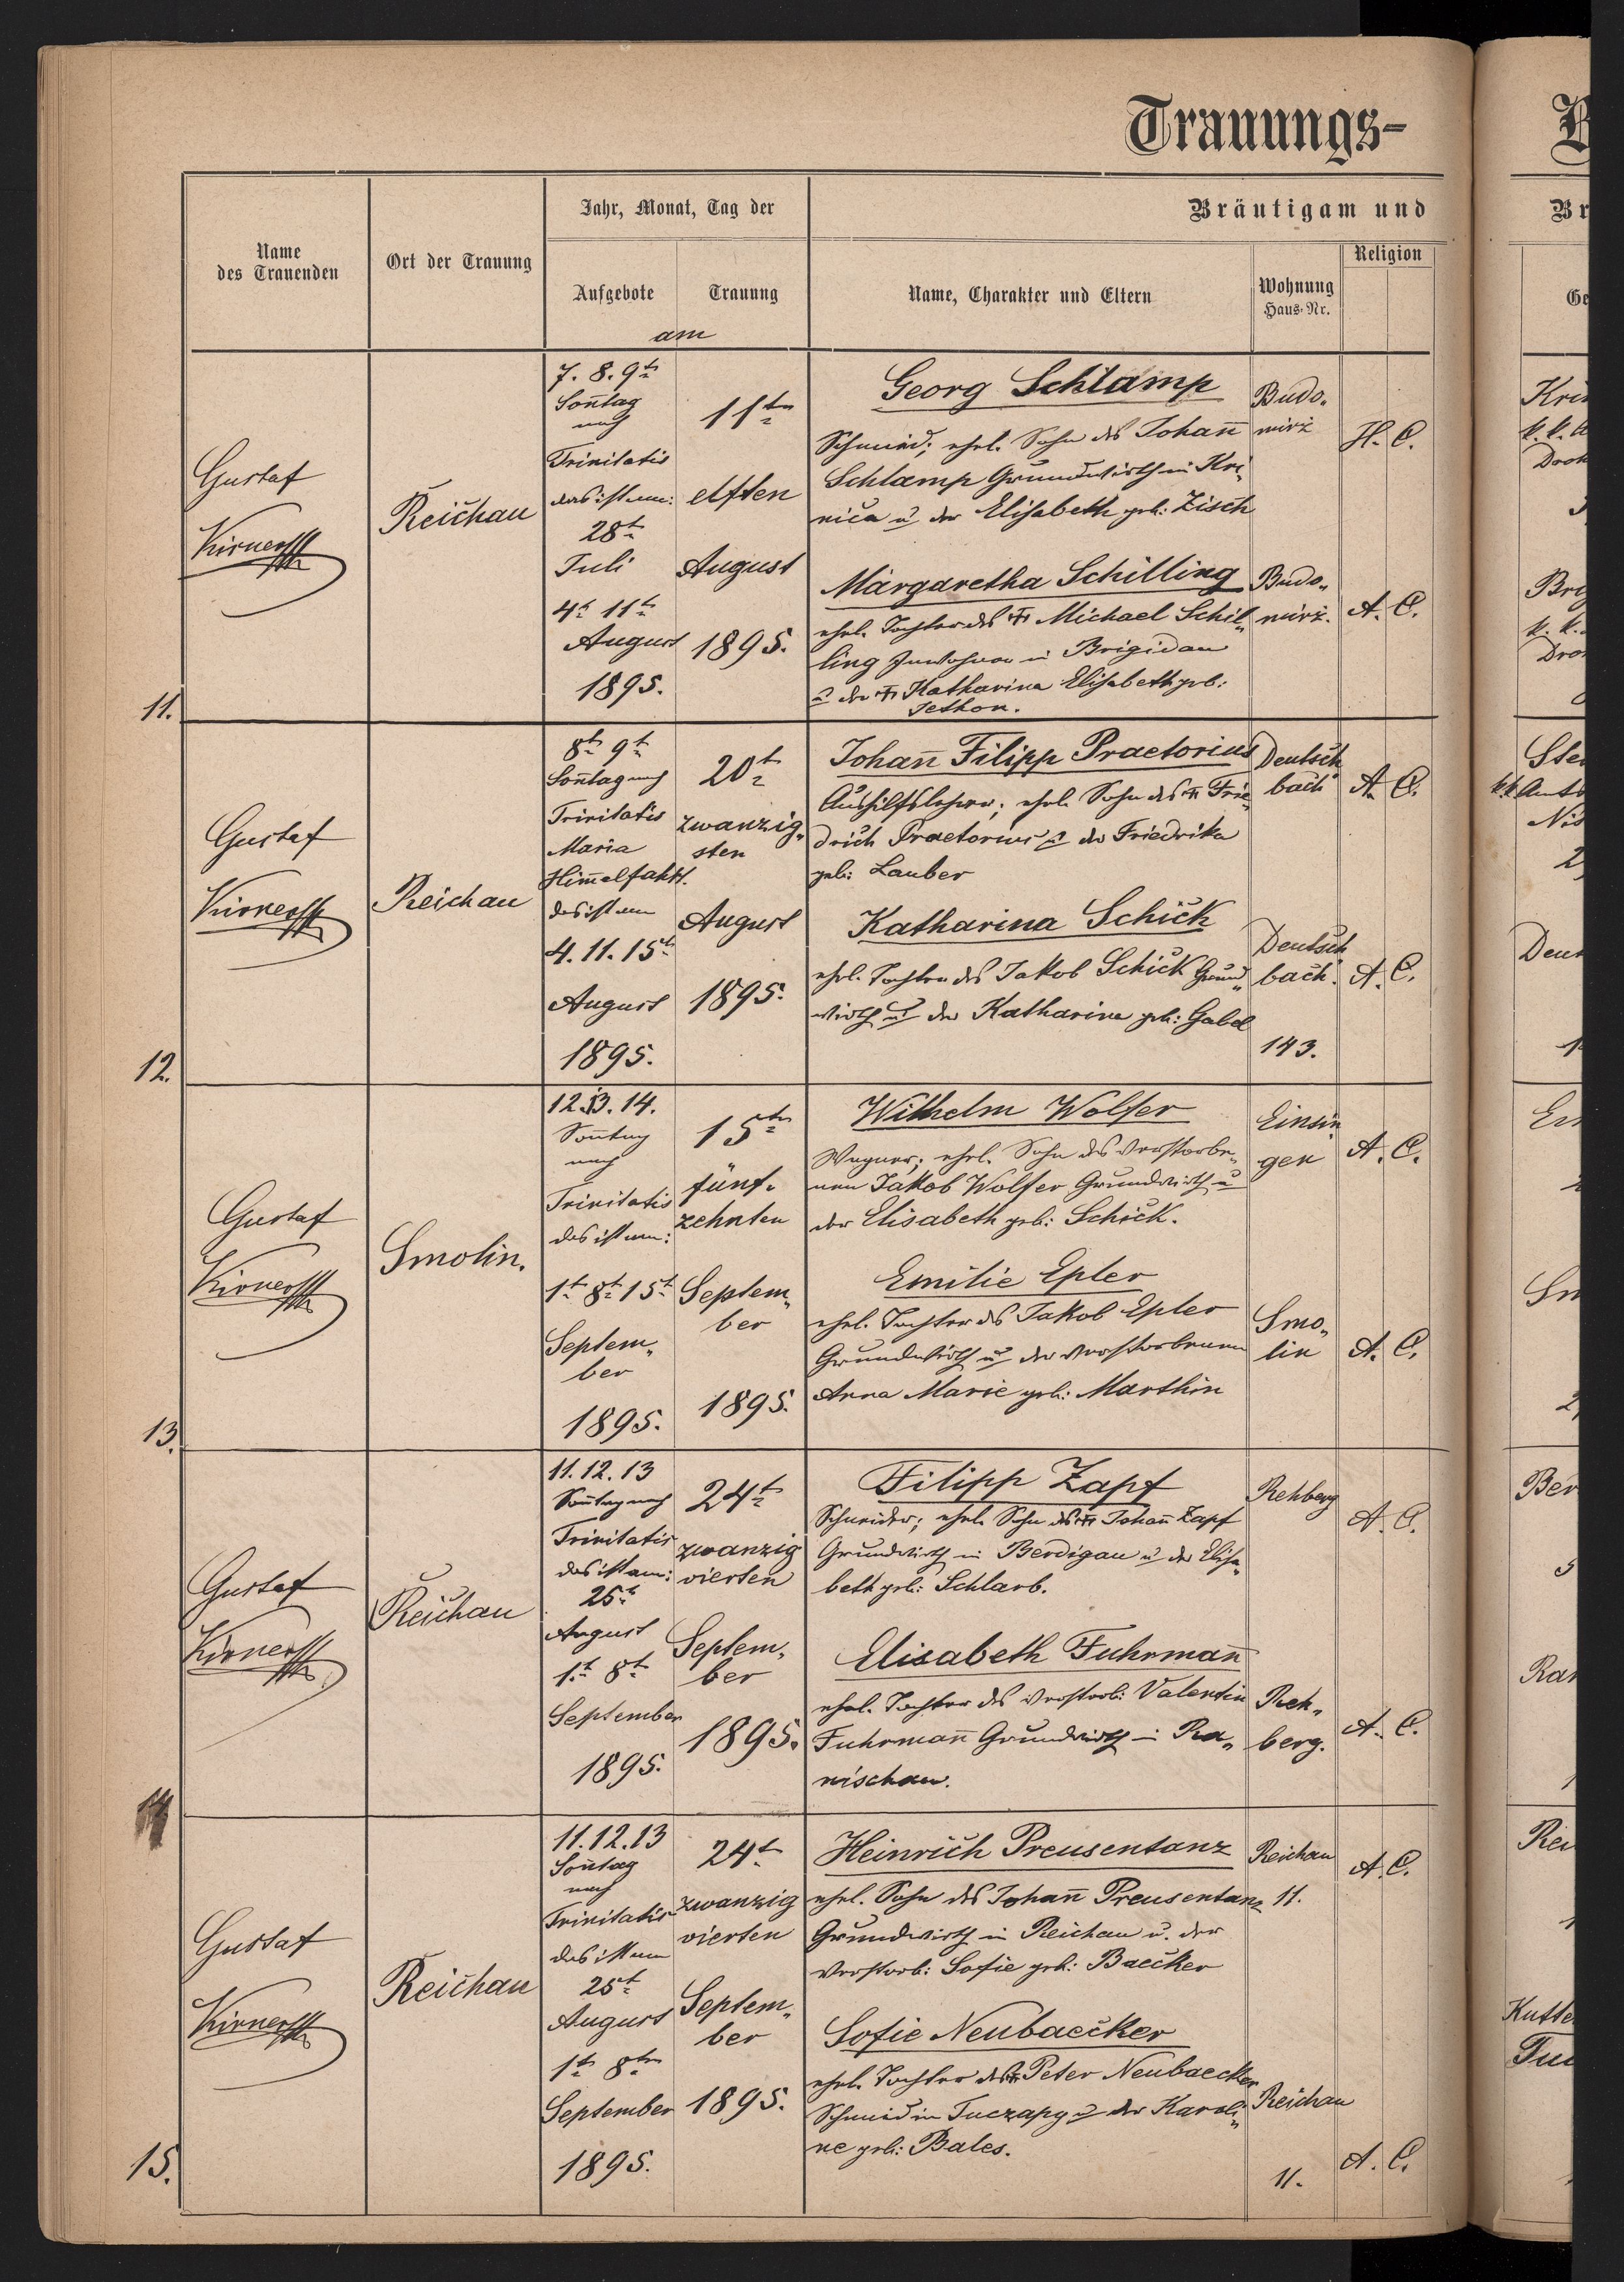 Trauungs-
Name
des Trauenden
Ort der Trauung
Jahr, Monat, Tag der
Aufgebote
Trauung
am
Bräutigam und
Name, Charakter und Eltern
Wohnung
Haus-Nr.
Religion
11.
Gustaf
Kirner
Reichau
7. 8. 9t
Son̄tag
nach
Trinitatis
das ist am:
28t
Juli
4t 11t
August
1895.
11tn
elften
August
1895.
Georg Schlamp
Schmied; ehel. Sohn des Johan̄
Schlamp Grundwirth in Kri-
nica u der Elisabeth geb: Zisch
Budo-
mirz
H. C.
Margaretha Schilling
ehel. Tochter des Michael Schil-
ling Inwohner in Brigidau
u der Katharina Elisabeth geb:
Jethon.
Budo-
mirz.
A. C.
12.
Gustaf
Kirner
Reichau
8t 9t
Son̄tag nach
Trinitatis
Maria
Him̄elfahrt.
das ist am
4. 11. 15t
August
1895.
20t
zwanzig-
sten
August
1895.
Johan̄ Filipp Praetorius
Aushilfslehrer; ehel. Sohn des Frie-
drich Praetorius u der Friedrika
geb: Lauber
Deutsch
bach
A. C.
Katharina Schick
ehel. Tochter des Jakob Schick Grund-
wirth u der Katharina geb: Gabel
Deutsch
bach.
143.
A. C.
13.
Gustaf
Kirner
Smolin.
12. 13. 14.
Son̄tag
nach
Trinitatis
das ist am:
1t 8t 15t
Septem-
ber
1895.
15tn
fünf-
zehnten
Septem-
ber
1895.
Wilhelm Wolfer
Wagner; ehel. Sohn des verstorbe-
nen Jakob Wolfer Grundwirth u
der Elisabeth geb: Schick.
Einsin-
gen
A. C.
Emilie Epler
ehel. Tochter des Jakob Epler
Grundwirth u der verstorbenen
Anna Marie geb: Marthin
Smo-
lin
A. C.
14
Gustaf
Kirner
Reichau
11. 12. 13
Son̄tag nach
Trinitatis
das ist am:
25t
August
1t 8t
September
1895.
24t
zwanzig
vierten
Septem-
ber
1895.
Filipp Zapf
Schneider; ehel. Sohn des Johan̄ Zapf
Grundwirth in Berdigau u der Elisa-
beth geb: Schlarb.
Rehberg
A. C.
Elisabeth Fuhrman̄
ehel. Tochter des verstorb: Valentin
Fuhrman̄ Grundwirth in Ra-
nischau.
Reh-
berg.
A. C.
15.
Gustaf
Kirner
Reichau
11. 12. 13
Son̄tag
nach
Trinitatis
das ist am
25t
August
1tn 8tn
September
1895.
24t
zwanzig
vierten
Septem-
ber
1895.
Heinrich Preusentanz
ehel. Sohn des Johan̄ Preusentanz
Grundwirth in Reichau u. der
verstorb: Sofie geb: Baecker
Reichau
11.
A. C.
Sofie Neubaecker
ehel. Tochter des Peter Neubaecker
Schmied in Tuczapy u der Karoli-
ne geb: Bales.
Reichau
11.
A. C.